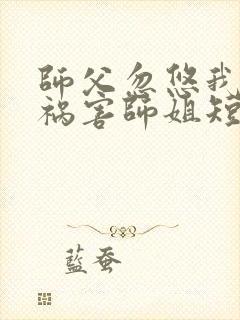 師父忽悠我
祸害師姐短
藍蚕